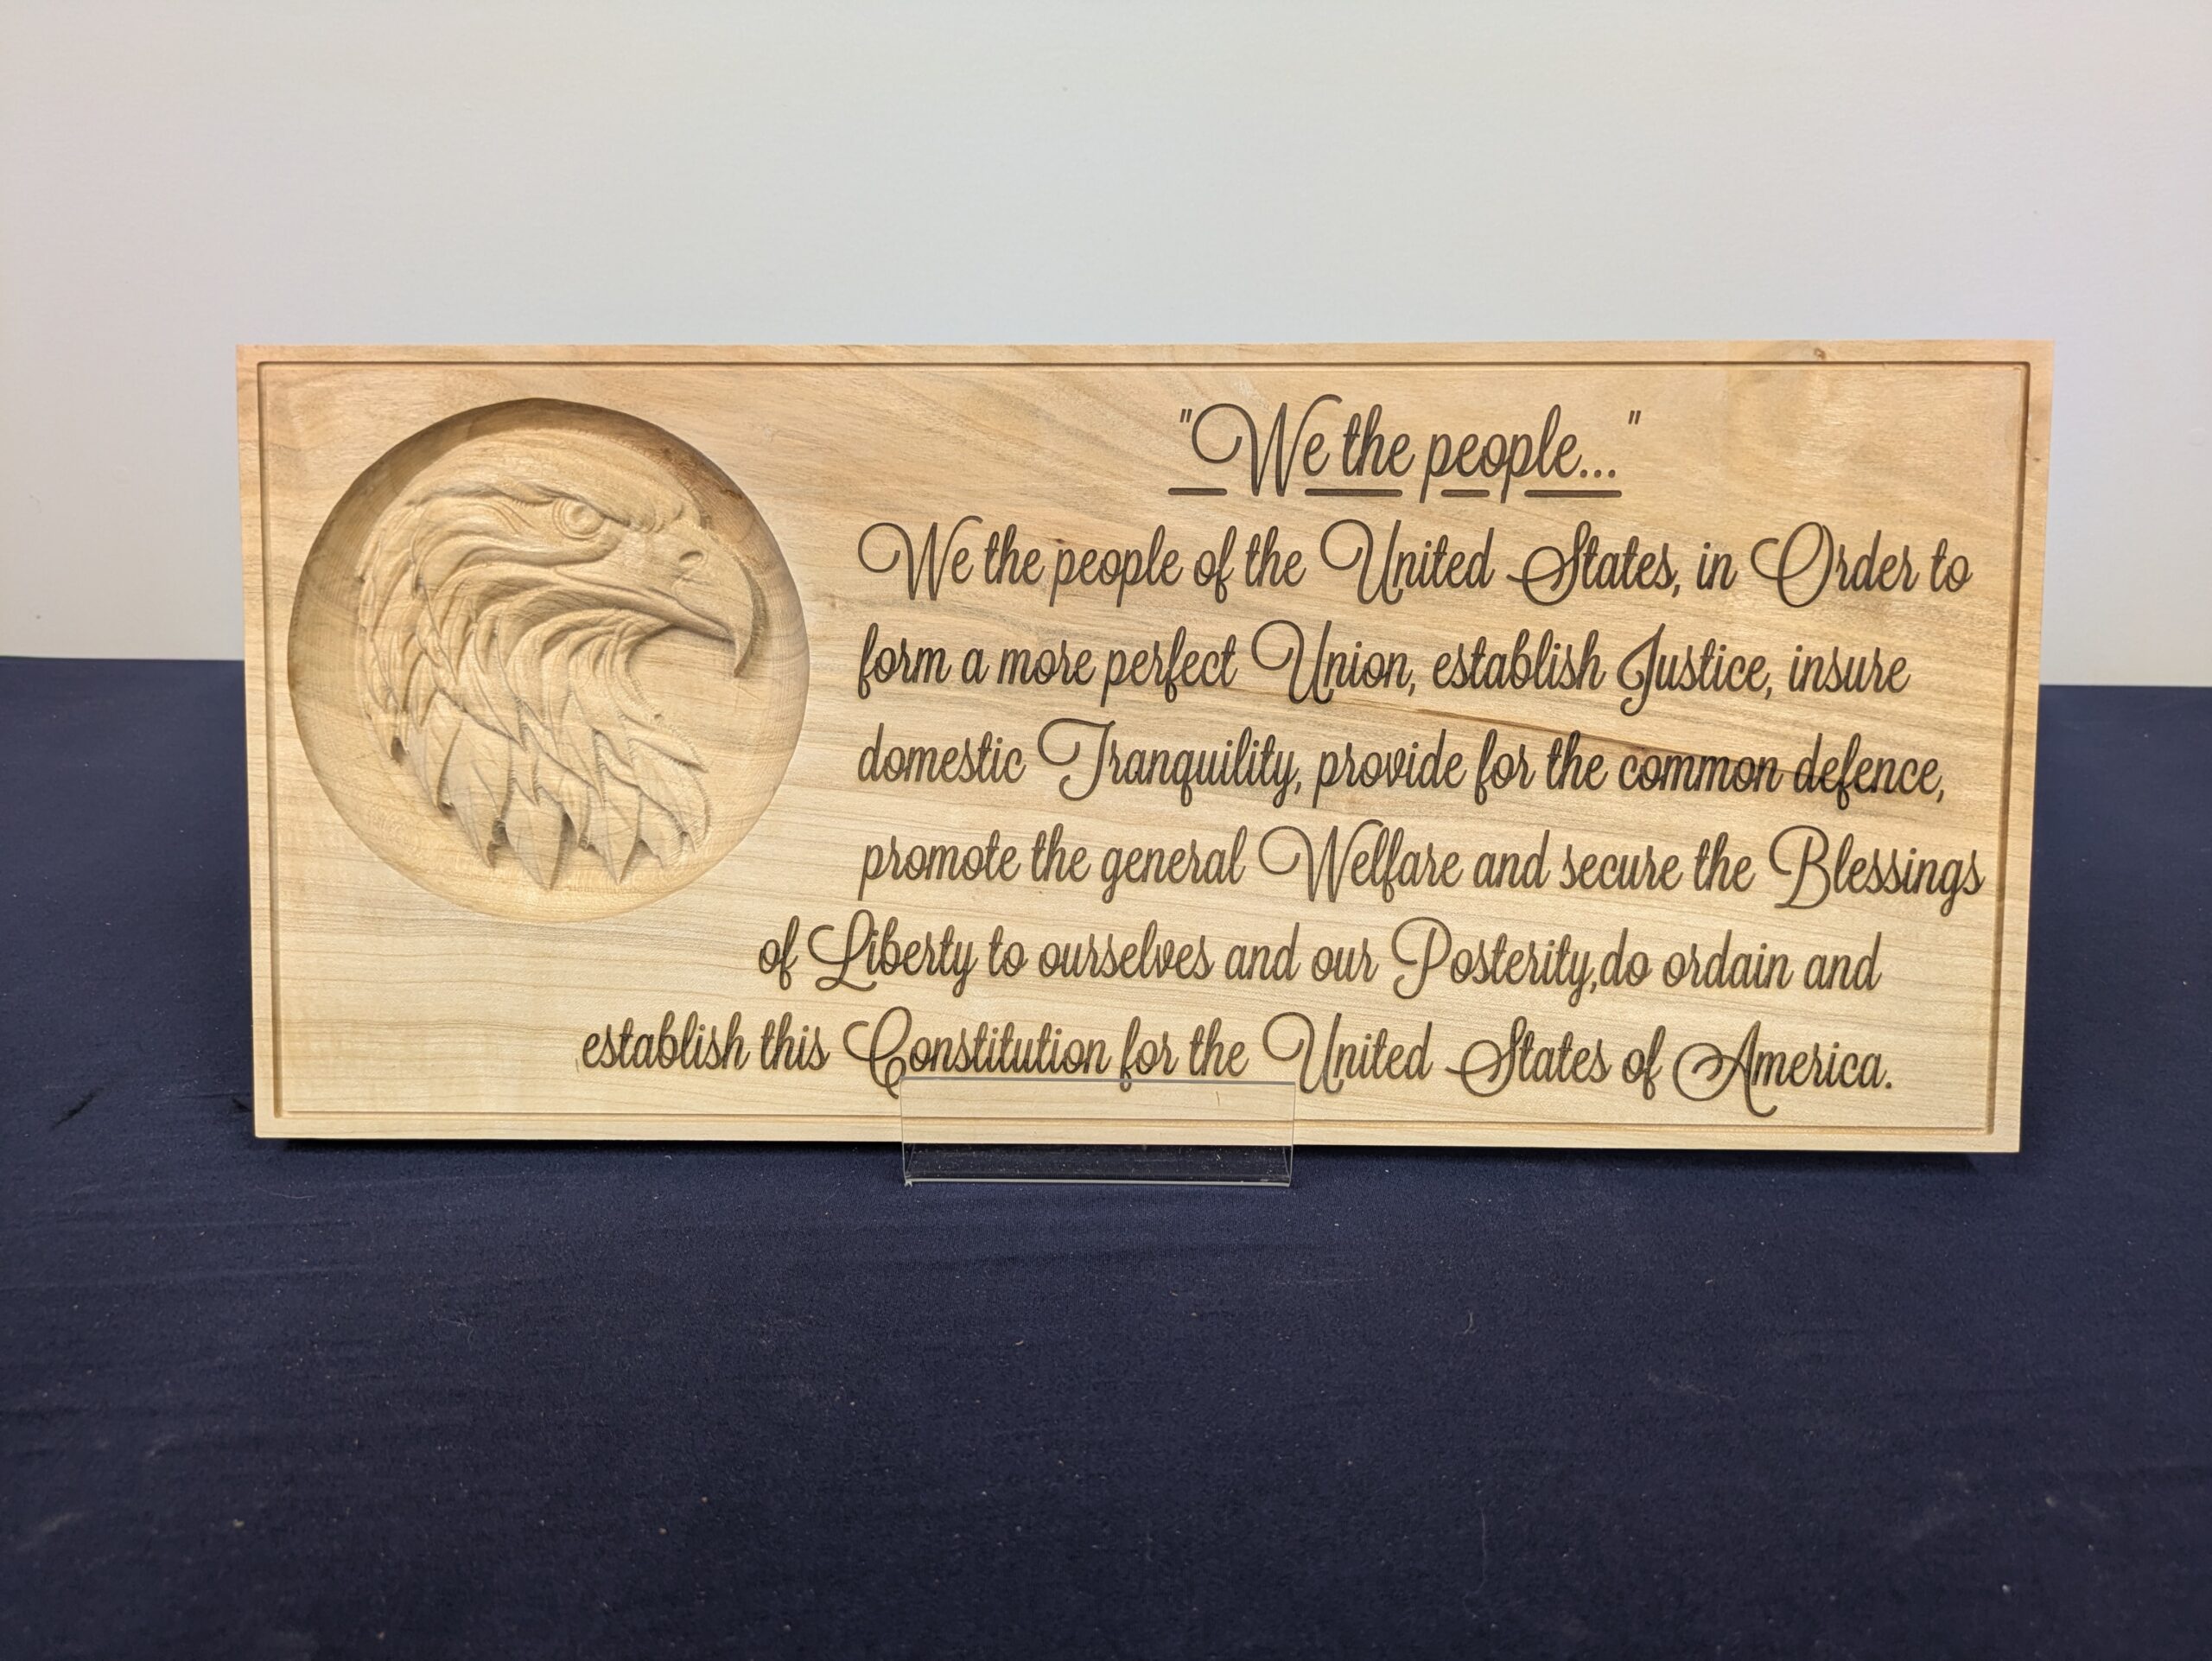 "We the people..."
We the people of the United States, in Order to
form a more perfect Union, establish Justice, insure
domestic Tranquility, provide for the common defence,
promote the general Welfare and secure the Blessings
of Liberty to ourselves and our Posterity,do ordain and
establish this Constitution for the United States of America.